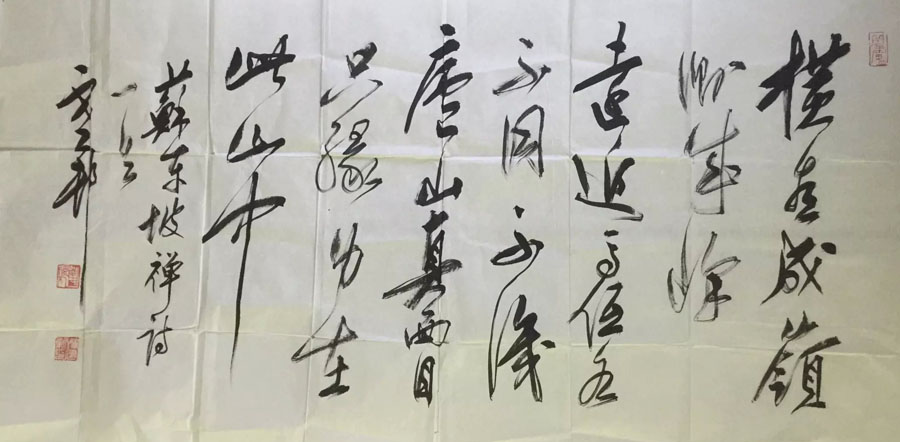 横看成嶺
侧成峰
遠近高低各
不同不識
廬山真面目
只緣身在
此山中
蘇东坡禅诗
一首